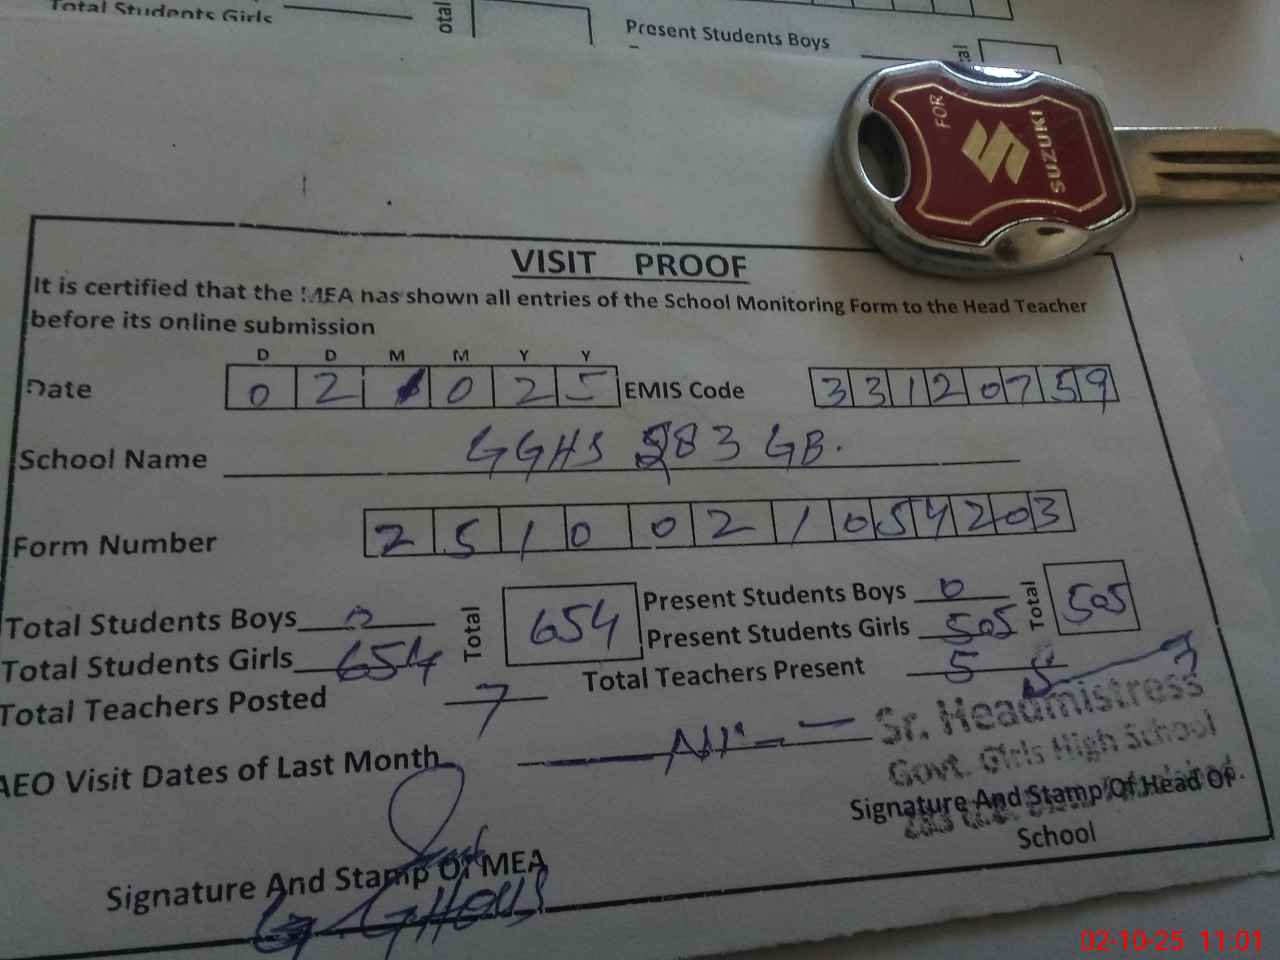 Total Students Girls
otal
Present Students Boys
FOR
SUZUKI
VISIT PROOF
It is certified that the MEA has shown all entries of the School Monitoring Form to the Head Teacher
before its online submission
D D M M Y Y
Date 0 2 1 0 2 5 EMIS Code 3 3 1 2 0 7 5 9
School Name GGHS 283 GB.
Form Number 2 5 1 0 0 2 1 0 5 4 2 0 3
Total Students Boys 0 Total 654 Present Students Boys 0 Total 505
Total Students Girls 654 Present Students Girls 505
Total Teachers Posted 7 Total Teachers Present 5
AEO Visit Dates of Last Month Nil
Sr. Headmistress
Govt. Girls High School
Signature And Stamp Of Head Of
School
Signature And Stamp Of MEA
02-10-25 11:01